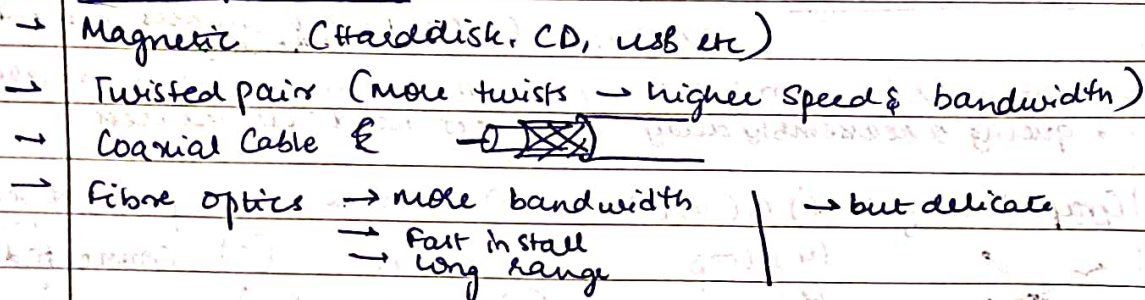 → Magnetic (Harddisk, CD, USB etc)
→ Twisted pair (more twists → higher speed & bandwidth)
→ Coaxial Cable
→ Fibre optics → more bandwidth | → but delicate
→ Fast install
→ long range